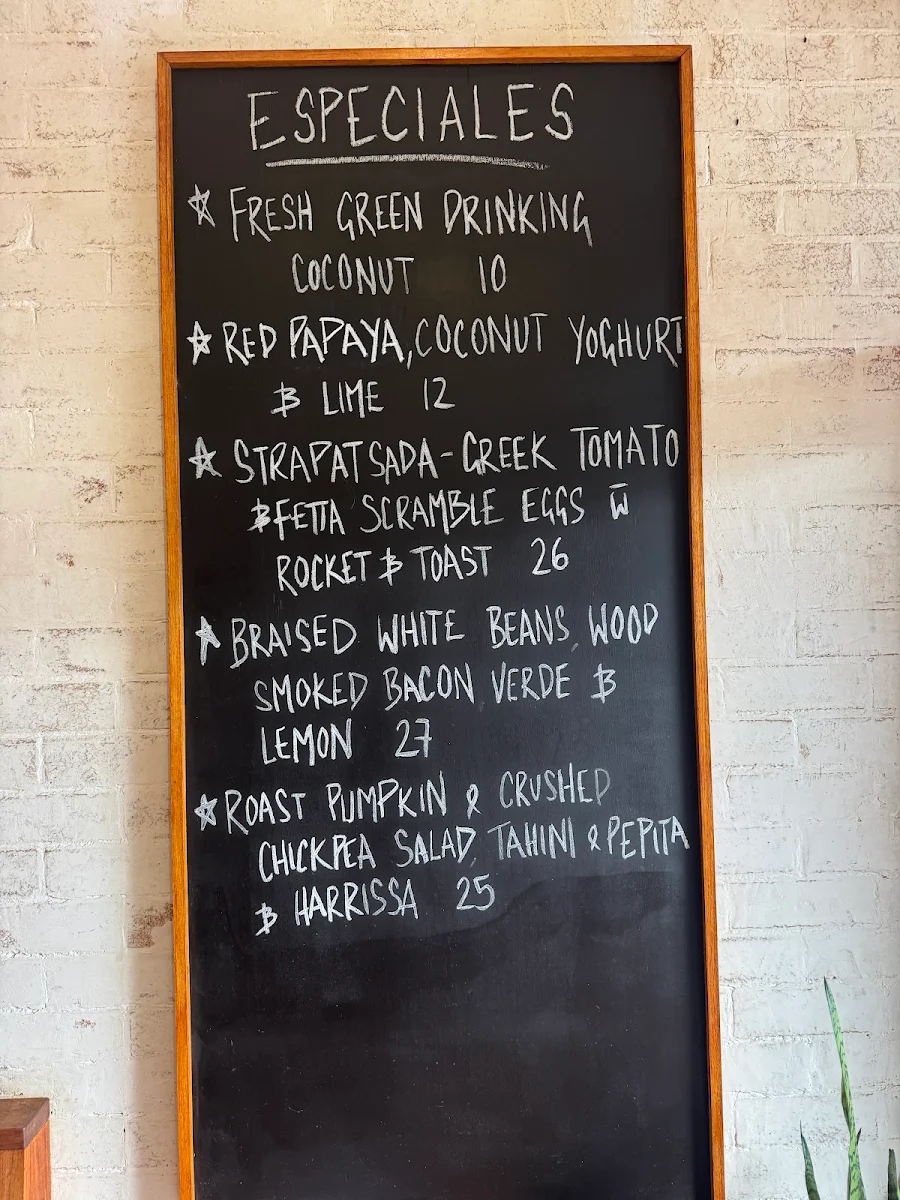 ESPECIALES
☆ FRESH GREEN DRINKING
COCONUT 10
☆ RED PAPAYA, COCONUT YOGHURT
& LIME 12
☆ STRAPATSADA - GREEK TOMATO
& FETTA SCRAMBLE EGGS w̄
ROCKET & TOAST 26
☆ BRAISED WHITE BEANS, WOOD
SMOKED BACON VERDE &
LEMON 27
☆ ROAST PUMPKIN & CRUSHED
CHICKPEA SALAD, TAHINI & PEPITA
& HARRISSA 25